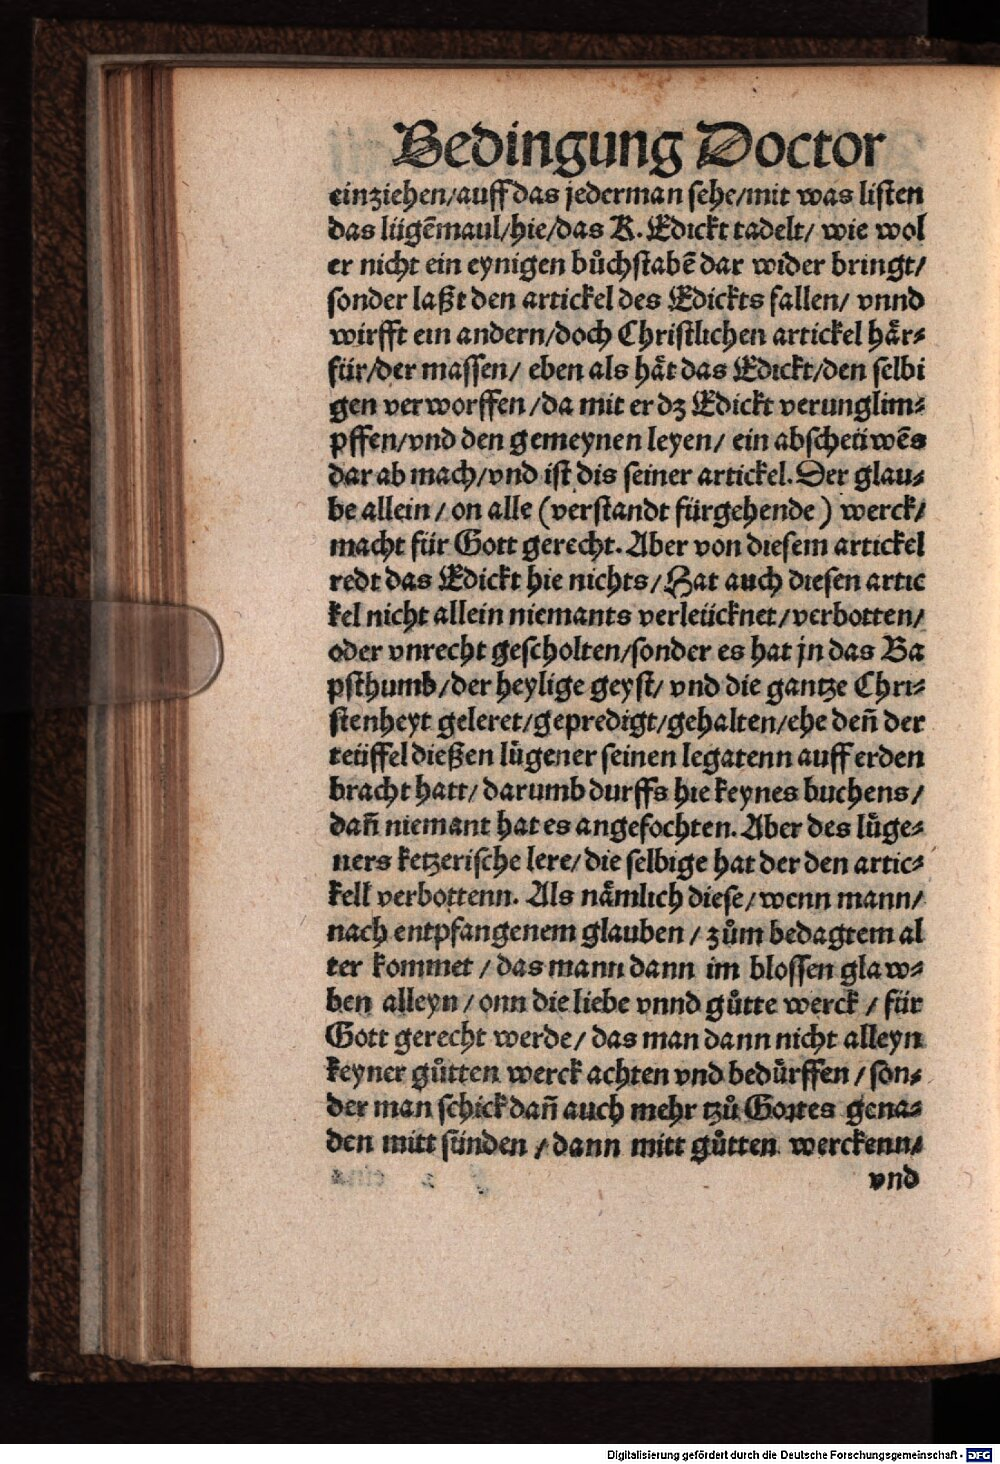 Bedingung Doctor
einziehen/auff das jederman sehe/mit was listen
das lügẽmaul/hie/das K. Edickt tadelt/ wie wol
er nicht ein eynigen bůchstabẽ dar wider bringt/
sonder laßt den artickel des Edickts fallen/ vnnd
wirfft ein andern/doch Christlichen artickel här⸗
für/der massen/ eben als hät das Edickt/den selbi
gen verworffen/da mit er dz Edickt verunglim⸗
pffen/vnd den gemeynen leyen/ ein abscheüwẽs
dar ab mach/vnd ist dis seiner artickel. Der glau⸗
be allein/ on alle (verstandt fürgehende) werck/
macht für Gott gerecht. Aber von diesem artickel
redt das Edickt hie nichts/Hat auch diesen artic
kel nicht allein niemants verleücknet/verbotten/
oder vnrecht gescholten/sonder es hat jn das Ba
psthumb/der heylige geyst/ vnd die gantze Chri⸗
stenheyt geleret/gepredigt/gehalten/ehe deñ der
teüffel dießen lůgener seinen legatenn auff erden
bracht hatt/ darumb durffs hie keynes buchens/
dañ niemant hat es angefochten. Aber des lůge⸗
ners ketzerische lere/die selbige hat der den artic⸗
kell verbottenn. Als nämlich diese/wenn mann/
nach entpfangenem glauben/ zům bedagtem al
ter kommet/das mann dann im blossen glaw⸗
ben alleyn/ onn die liebe vnnd gůtte werck/ für
Gott gerecht werde/ das man dann nicht alleyn
keyner gůtten werck achten vnd bedůrffen/son⸗
der man schick dañ auch mehr tzů Gottes gena⸗
den mitt sünden/dann mitt gůtten werckenn/
vnd
Digitalisierung gefördert durch die Deutsche Forschungsgemeinschaft - DFG